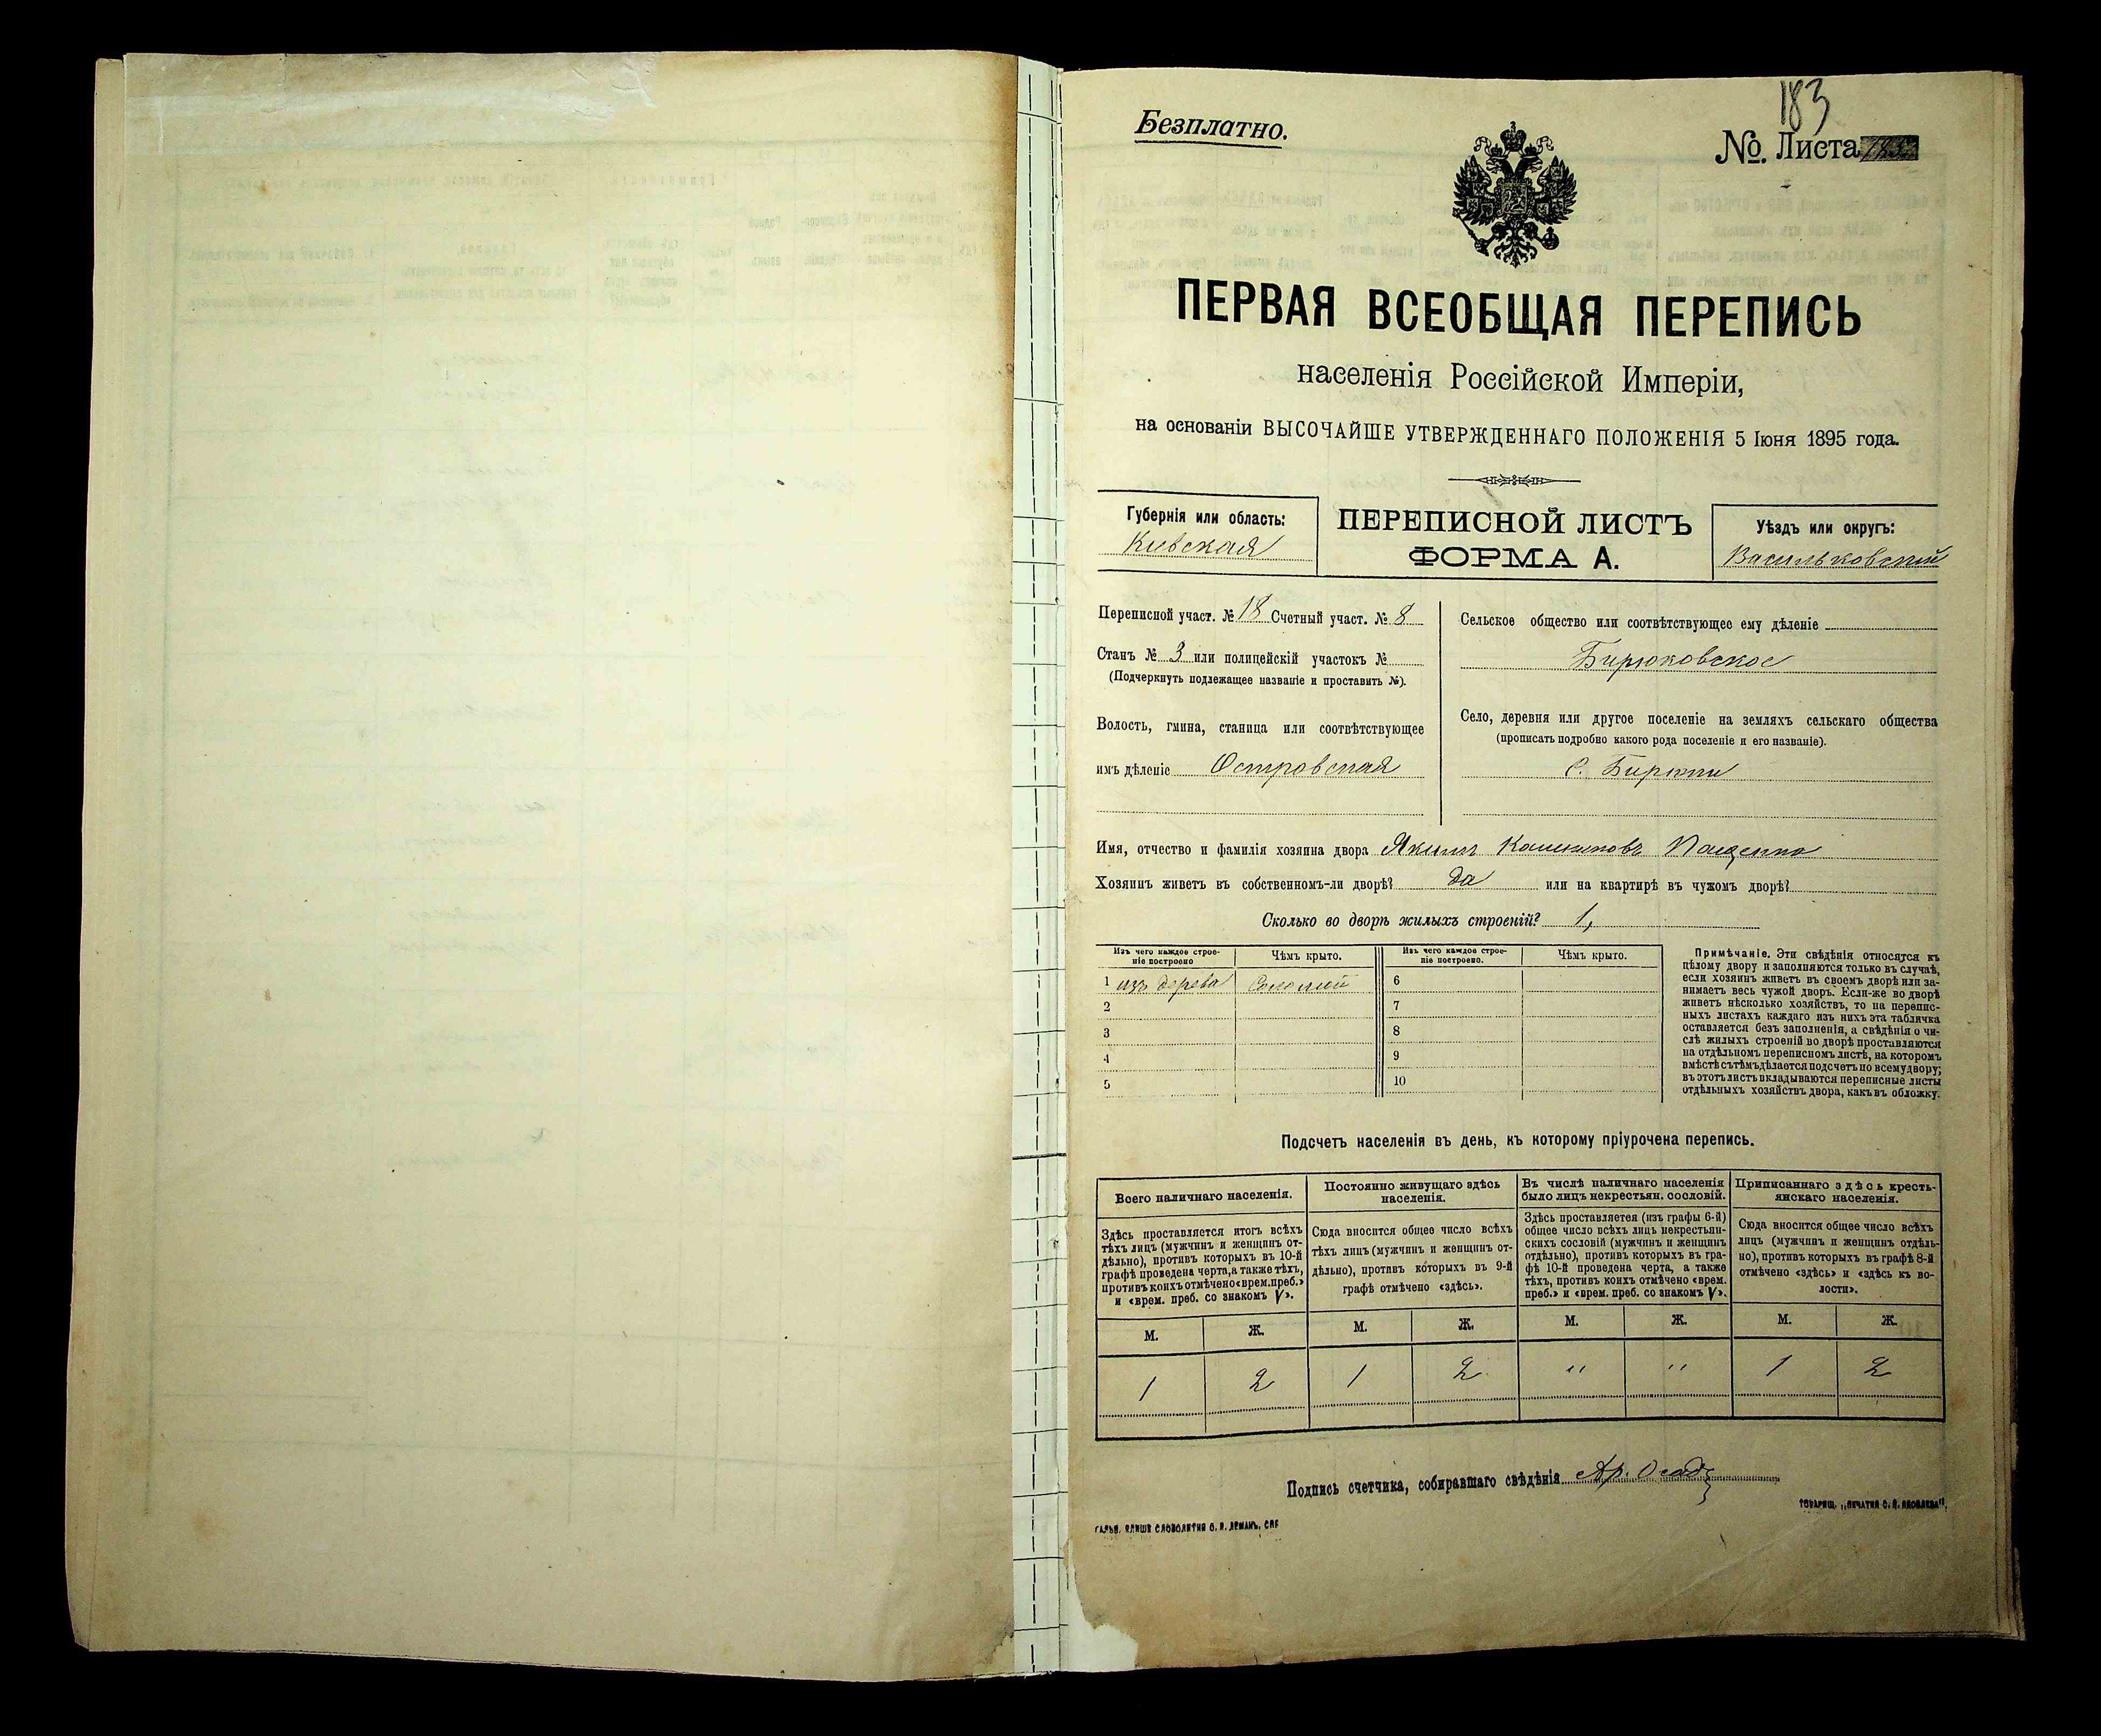 183
Безплатно.
№. Листа
ПЕРВАЯ ВСЕОБЩАЯ ПЕРЕПИСЬ
населенія Россійской Имперіи,
на основаніи ВЫСОЧАЙШЕ УТВЕРЖДЕННАГО ПОЛОЖЕНІЯ 5 Іюня 1895 года.
Губернія или область:
Кіевская
ПЕРЕПИСНОЙ ЛИСТЪ
ФОРМА А.
Уѣздъ или округъ:
Васильковскій
Переписной участ. № 18 Счетный участ. № 8
Станъ № 3 или полицейскій участокъ №
(Подчеркнуть подлежащее названіе и проставить №).
Волость, гмина, станица или соотвѣтствующее
имъ дѣленіе Островская
Сельское общество или соотвѣтствующее ему дѣленіе
Бирюковское
Село, деревня или другое поселеніе на земляхъ сельскаго общества
(прописать подробно какого рода поселеніе и его названіе).
С. Бирюки
Имя, отчество и фамилія хозяина двора Якимъ Пащенко
Хозяинъ живетъ въ собственномъ-ли дворѣ? да или на квартирѣ въ чужомъ дворѣ?
Сколько во дворѣ жилыхъ строеній? 1,
Изъ чего каждое строе-
ніе построено
Чѣмъ крыто.
Изъ чего каждое строе-
ніе построено.
Чѣмъ крыто.
1 изъ дерева Соломой 6
2 7
3 8
4 9
5 10
Примѣчаніе. Эти свѣдѣнія относятся къ
цѣлому двору и заполняются только въ случаѣ,
если хозяинъ живетъ въ своемъ дворѣ или за-
нимаетъ весь чужой дворъ. Если-же во дворѣ
живетъ нѣсколько хозяйствъ, то на перепис-
ныхъ листахъ каждаго изъ нихъ эта табличка
оставляется безъ заполненія, а свѣдѣнія о чи-
слѣ жилыхъ строеній во дворѣ проставляются
на отдѣльномъ переписномъ листѣ, на которомъ
вмѣстѣ съ тѣмъ дѣлается подсчетъ по всему двору;
въ этотъ листъ вкладываются переписные листы
отдѣльныхъ хозяйствъ двора, какъ въ обложку.
Подсчетъ населенія въ день, къ которому пріурочена перепись.
Всего наличнаго населенія.
Здѣсь проставляется итогъ всѣхъ
тѣхъ лицъ (мужчинъ и женщинъ от-
дѣльно), противъ которыхъ въ 10-й
графѣ проведена черта, а также тѣхъ,
противъ коихъ отмѣчено «врем. преб.»
и «врем. преб. со знакомъ V».
Постоянно живущаго здѣсь
населенія.
Сюда вносится общее число всѣхъ
тѣхъ лицъ (мужчинъ и женщинъ от-
дѣльно), противъ которыхъ въ 9-й
графѣ отмѣчено «здѣсь».
Въ числѣ наличнаго населенія
было лицъ некрестьян. сословій.
Здѣсь проставляется (изъ графы 6-й)
общее число всѣхъ лицъ некрестьян-
скихъ сословій (мужчинъ и женщинъ
отдѣльно), противъ которыхъ въ гра-
фѣ 10-й проведена черта, а также
тѣхъ, противъ коихъ отмѣчено «врем.
преб.» и «врем. преб. со знакомъ V».
Приписаннаго здѣсь кресть-
янскаго населенія.
Сюда вносится общее число всѣхъ
лицъ (мужчинъ и женщинъ отдѣль-
но), противъ которыхъ въ графѣ 8-й
отмѣчено «здѣсь» и «здѣсь къ во-
лости».
М. Ж. М. Ж. М. Ж. М. Ж.
1 2 1 2 " " 1 2
Подпись счетчика, собиравшаго свѣдѣнія
ТОВАРИЩ. „ПЕЧАТНЯ С. П. ЯКОВЛЕВА“.
ГАЛЬВ. КЛИШЕ СЛОВОЛИТНИ О. И. ЛЕМАНЪ, СПБ